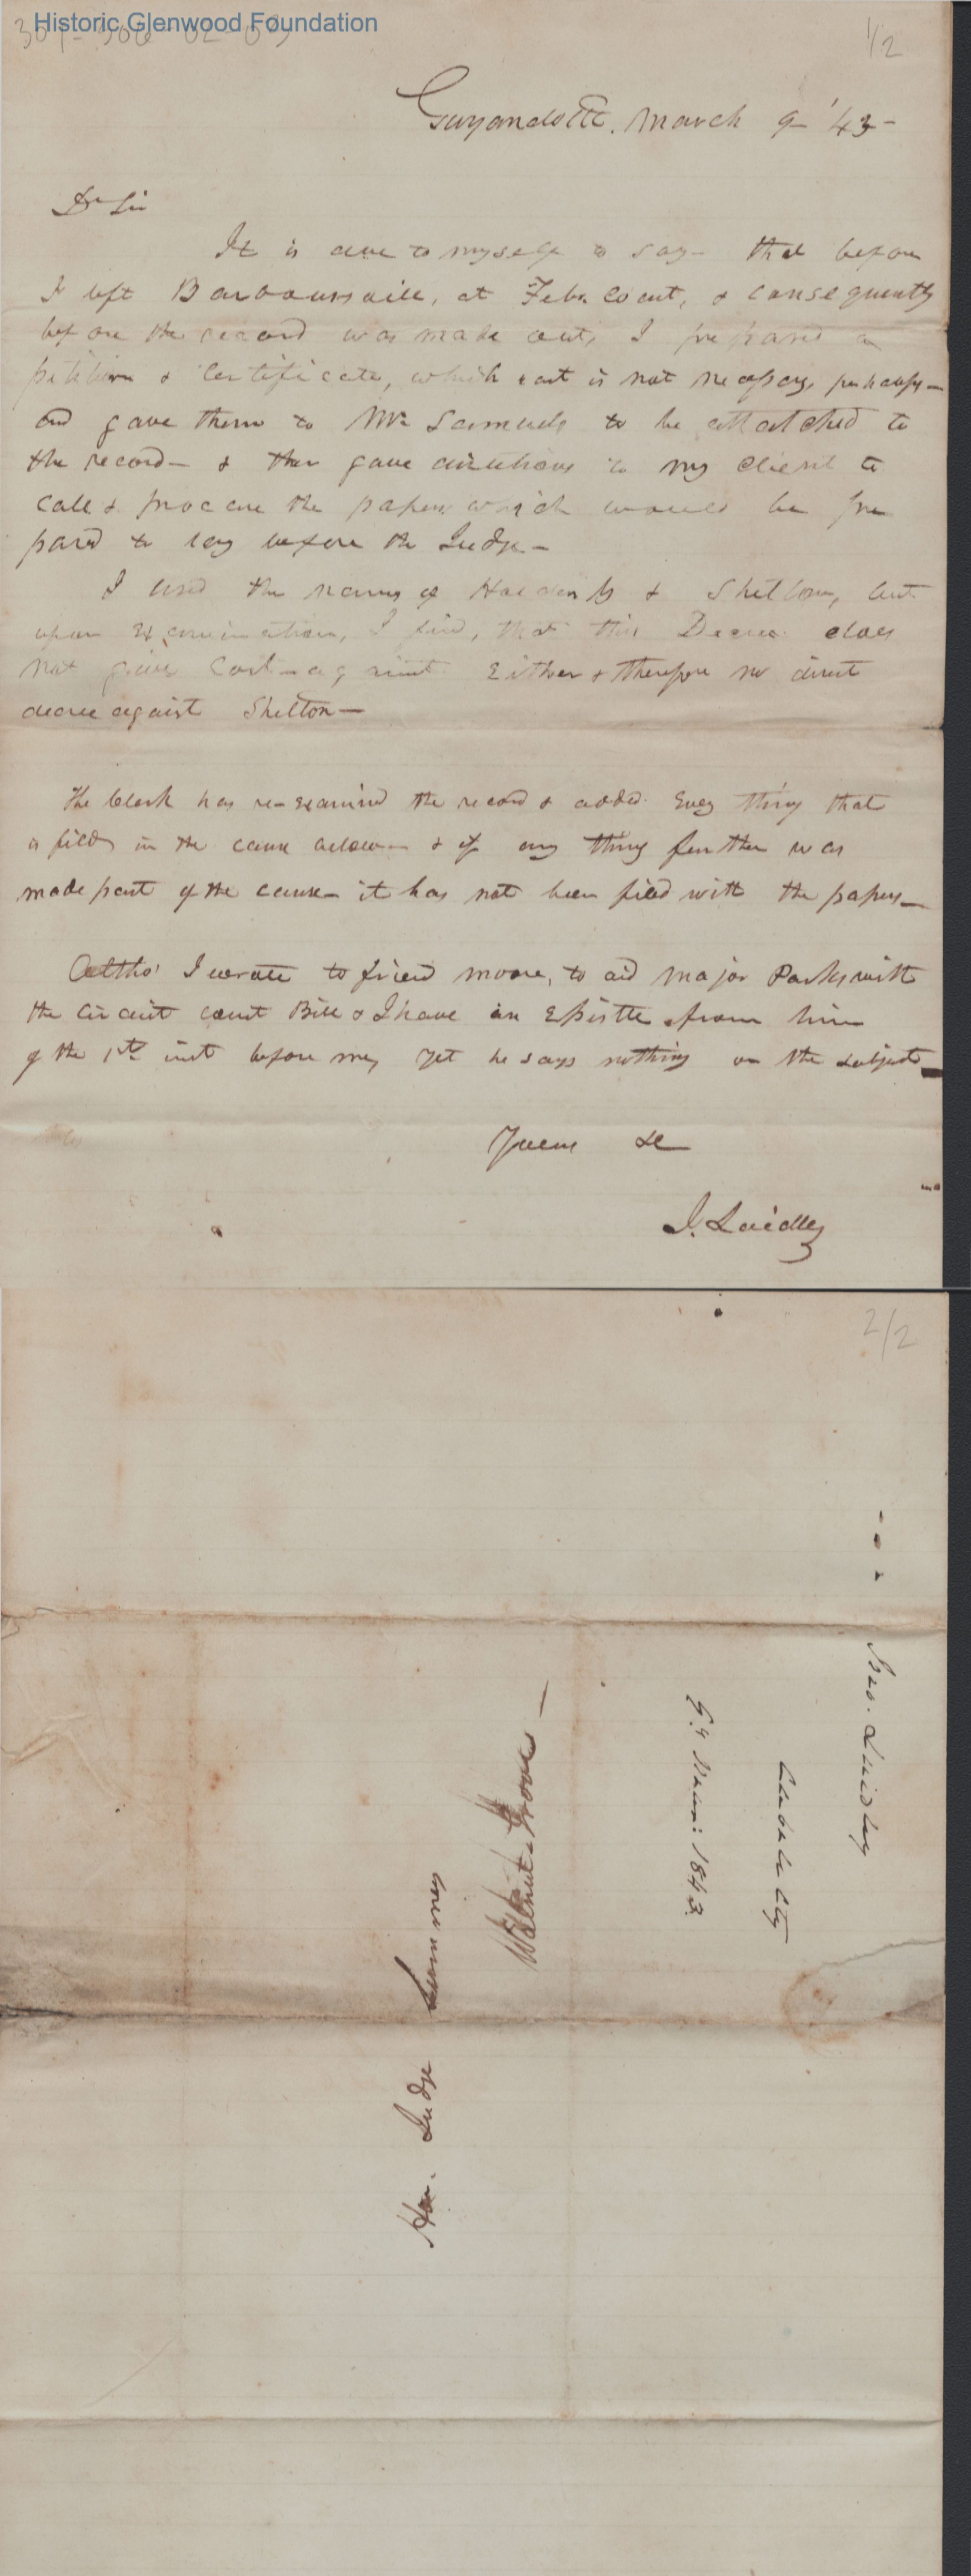 Historic Glenwood Foundation
1/2
Guyandotte. March 9 - '43 -
Dr Sir
It is due to myself to say - that before
I left Barboursville, at Feby. Court, & consequently
before the record was made out, I prepared a
petition & Certificate, which is not necessary, perhaps -
and gave them to Mr. Samuels to be attatched to
the record - & then gave directions to my client to
call & procure the papers which would be pre
pared to lay before the Judge -
I used the names of & Shelton, but
upon examination, I find, that this Decree does
not give Cost against Either & therefore no direct
decree against Shelton -
The Clerk has re-examined the record & added Every thing that
is filed in the cause below - & if any thing further was
made part of the cause - it has not been filed with the papers -
Altho' I wrote to friend Moore, to aid Major Parks with
the Circuit Court Bill & I have an Epistle from him
of the 1st inst before me, yet he says nothing on the subject -
Yours &c
J. Laidley
2/2
Jno. Laidley
Cabell Cty
9th March 1843.
Walnut-Grove -
Hon. Judge Summers